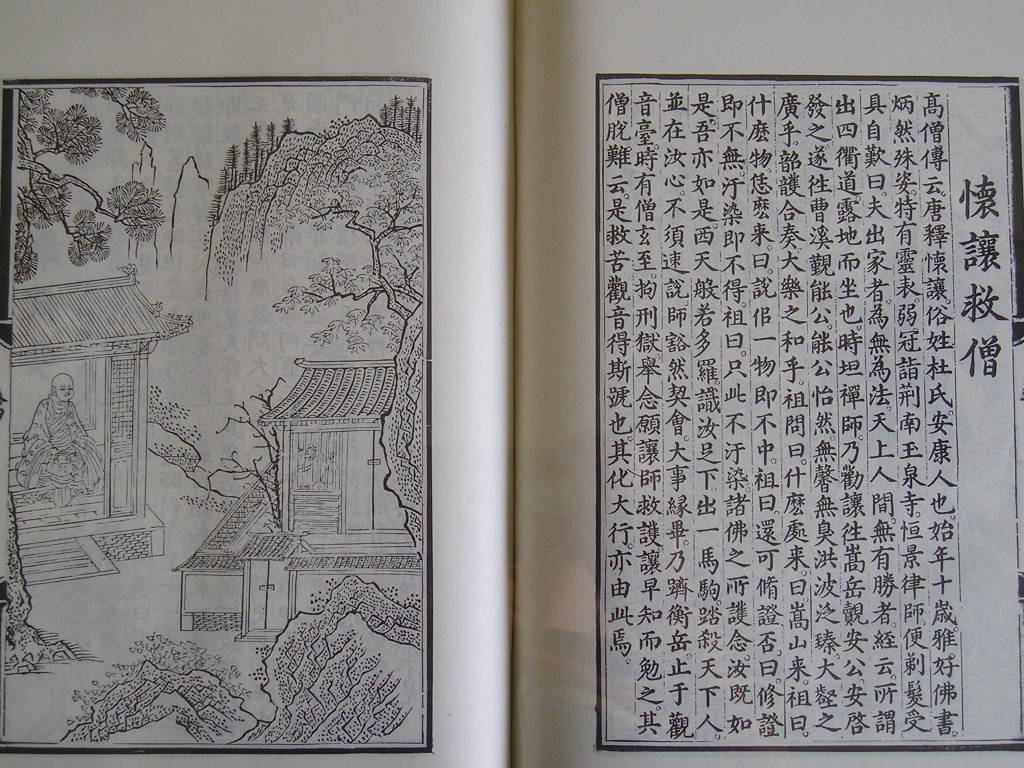 懷讓救僧
髙僧傳云。唐釋懷讓。俗姓杜氏。安康人也。始年十歲。雅好佛書。
炳然殊姿。特有靈表。弱冠詣荆南玉泉寺。恒景律師便剃髮受
具。自歎曰。夫出家者。為無為法。天上人間。無有勝者。經云。所謂
出四衢道。露地而坐也。時坦禪師。乃勸讓往嵩岳覲安公。安啓
發之。遂往曹溪覲能公。能公怡然。無馨無臭。洪波泛臻。大壑之
廣乎。韶護合奏。大樂之和乎。祖問曰。什麼處來。曰嵩山來。祖曰。
什麼物恁麼來。曰。說似一物即不中。祖曰。還可脩證否。曰。修證
即不無。汙染即不得。祖曰。只此不汙染。諸佛之所護念。汝既如
是。吾亦如是。西天般若多羅。識汝足下出一馬駒。踏殺天下人。
並在汝心。不須速說。師豁然契會。大事緣畢。乃躋衡岳。止于觀
音臺。時有僧玄至。拘刑獄。舉念願讓師救護。讓早知而勉之。其
僧脫難。云。是救苦觀音。得斯號也。其化大行。亦由此焉。